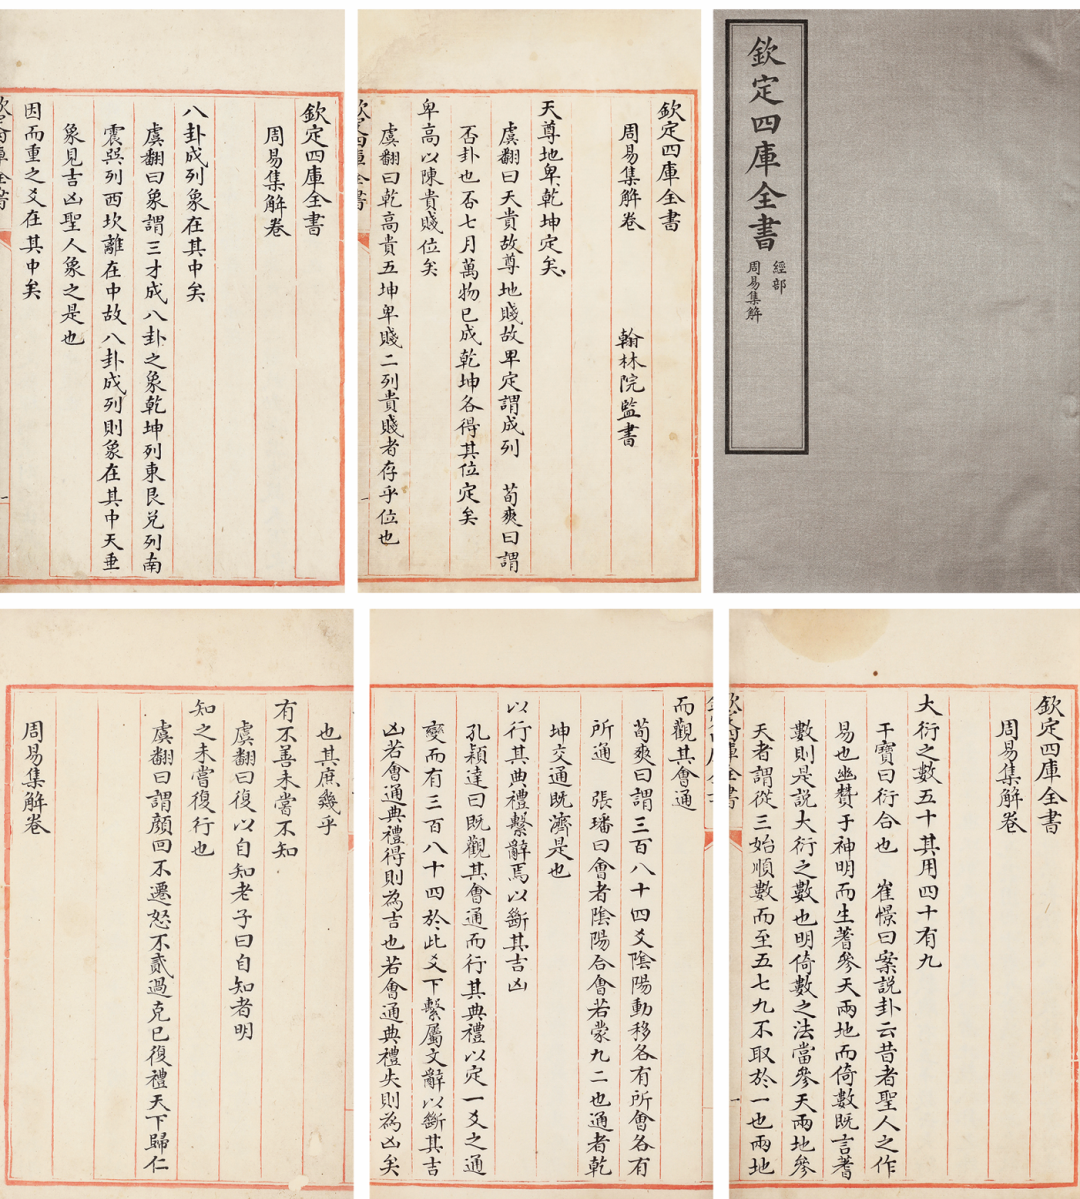 欽定四庫全書
經部
周易集解
欽定四庫全書
周易集解卷
翰林院監書
天尊地卑乾坤定矣
虞翻曰天貴故尊地賤故卑定謂成列 荀爽曰謂
否卦也否七月萬物已成乾坤各得其位定矣
卑高以陳貴賤位矣
虞翻曰乾高貴五坤卑賤二列貴賤者存乎位也
欽定四庫全書
周易集解卷
八卦成列象在其中矣
虞翻曰象謂三才成八卦之象乾坤列東艮兌列南
震巽列西坎離在中故八卦成列則象在其中天垂
象見吉凶聖人象之是也
因而重之爻在其中矣
欽定四庫全書
周易集解卷
大衍之數五十其用四十有九
干寶曰衍合也 崔憬曰案說卦云昔者聖人之作
易也幽贊于神明而生蓍參天兩地而倚數既言蓍
數則是說大衍之數也明倚數之法當參天兩地參
天者謂從三始順數而至五七九不取於一也兩地
而觀其會通
荀爽曰謂三百八十四爻陰陽動移各有所會各有
所通 張璠曰會者陰陽合會若蒙九二也通者乾
坤交通既濟是也
以行其典禮繫辭焉以斷其吉凶
孔穎達曰既觀其會通而行其典禮以定一爻之通
變而有三百八十四於此爻下繫屬文辭以斷其吉
凶若會通典禮得則為吉也若會通典禮失則為凶矣
也其庶幾乎
有不善未嘗不知
虞翻曰復以自知老子曰自知者明
知之未嘗復行也
虞翻曰謂顏回不遷怒不貳過克己復禮天下歸仁
周易集解卷